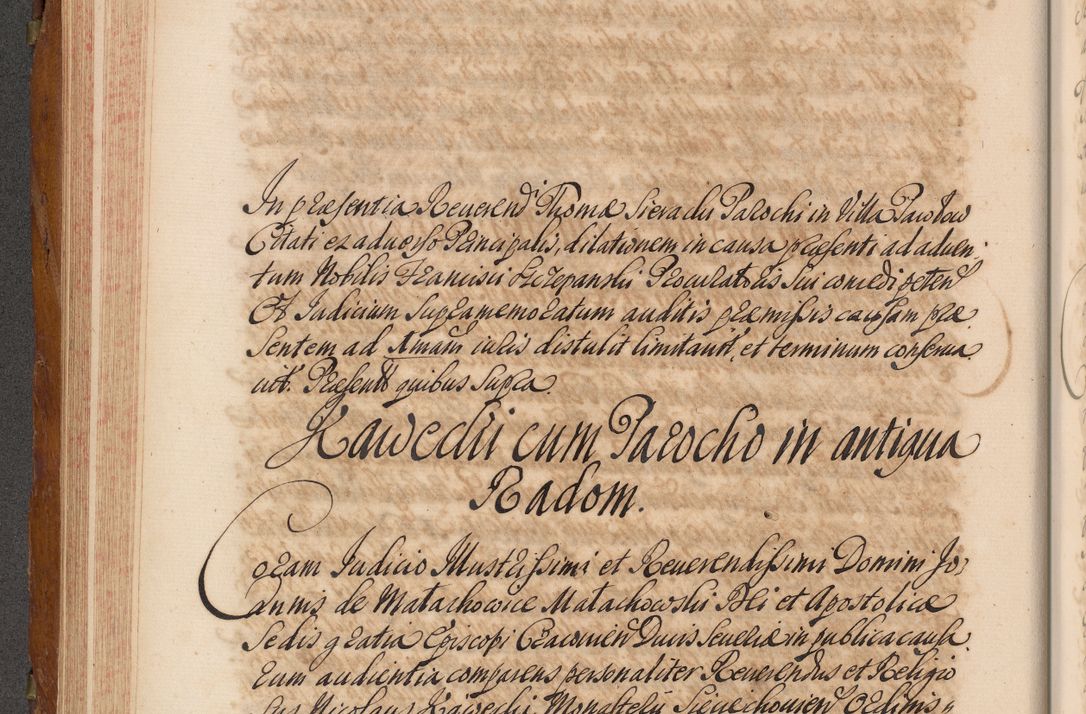 In præsentia Reuerend̃i Thomæ Sieradzki Parochi in Villa
Citati ex aduerso Principalis, dilationem in causa præsenti ad aduen-
tum Nobilis Francisci Szczepanski Procuratoris sui concedi peteñ
Et Judicium supramemoratum auditis præmissis causam præ
sentem ad Amam iuris distulit limitauit, et terminum conserua
uit. Præsentt quibus supra.
Kawecki cum Parocho in antiqua
Radom.
Coram Judicio Illustrissimi et Reuerendissimi Domini Jo-
annis de Małachowice Małachowski Dei et Apostolicæ
Sedis gratia Episcopi Cracouień Ducis Seueriæ in publica causa
rum audientia comparens personaliter Reuerendus et Religio
sus Nicolaus Kawecki, Monasterij Sieciechouień Ordinis